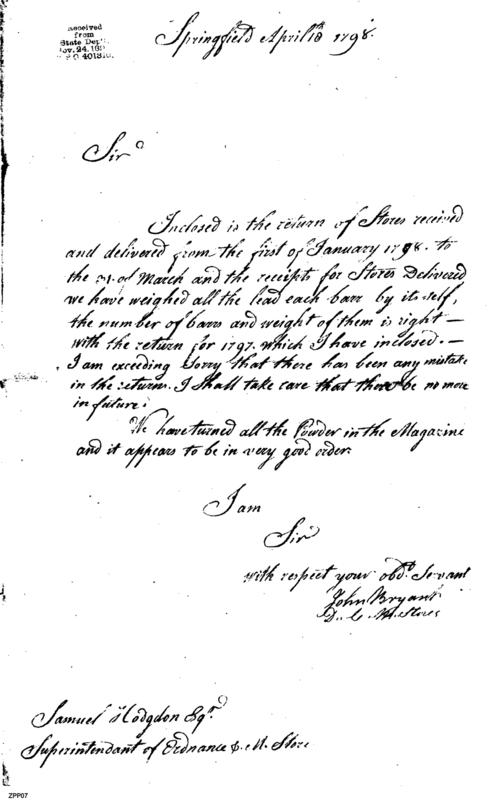 Received
from
State Dept.
Nov. 24. 189
Springfield April 18 1798.
Sir
Inclosed is the return of Stores received
and delivered from the first of January 1798. to
the 31. of March and the receipts for Stores Delivered
we have weighed all the lead each barr by its self,
the number of barrs and weight of them is right —
with the return for 1797. which I have inclosed. —
I am exceeding Sorry that there has been any mistake
in the returns. I Shall take care that there be no more
in future.
We have turned all the Powder in the Magazine
and it appears to be in very good order.
I am
Sir
with respect your obdt. Servant
John Bryant
D. C. M. Stores
Samuel Hodgdon Esqr.
Superintendant of Ordnance & M. Store
ZPP07